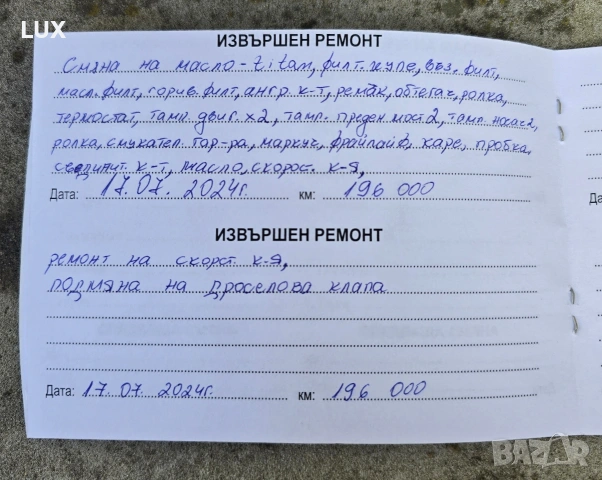 LUX
ИЗВЪРШЕН РЕМОНТ
Смяна на масло - titan, филт. купе, въз. филт,
масл. филт, горив. филт, ангр. к-т, ремък, обтегач, ролка,
термостат, тамп. двиг. х2, тамп. преден мост 2, тамп. носач 2,
ролка, смукател. гар-ра, маркуч, фрайлауф, каре, пробка,
съединит. к-т, масло, скорост. к-я,
Дата: 17.07. 2024г. км: 196 000
ИЗВЪРШЕН РЕМОНТ
ремонт на скорст. к-я,
подмяна на дроселова клапа
Дата: 17.07. 2024г. км: 196 000
Да
BAZAR